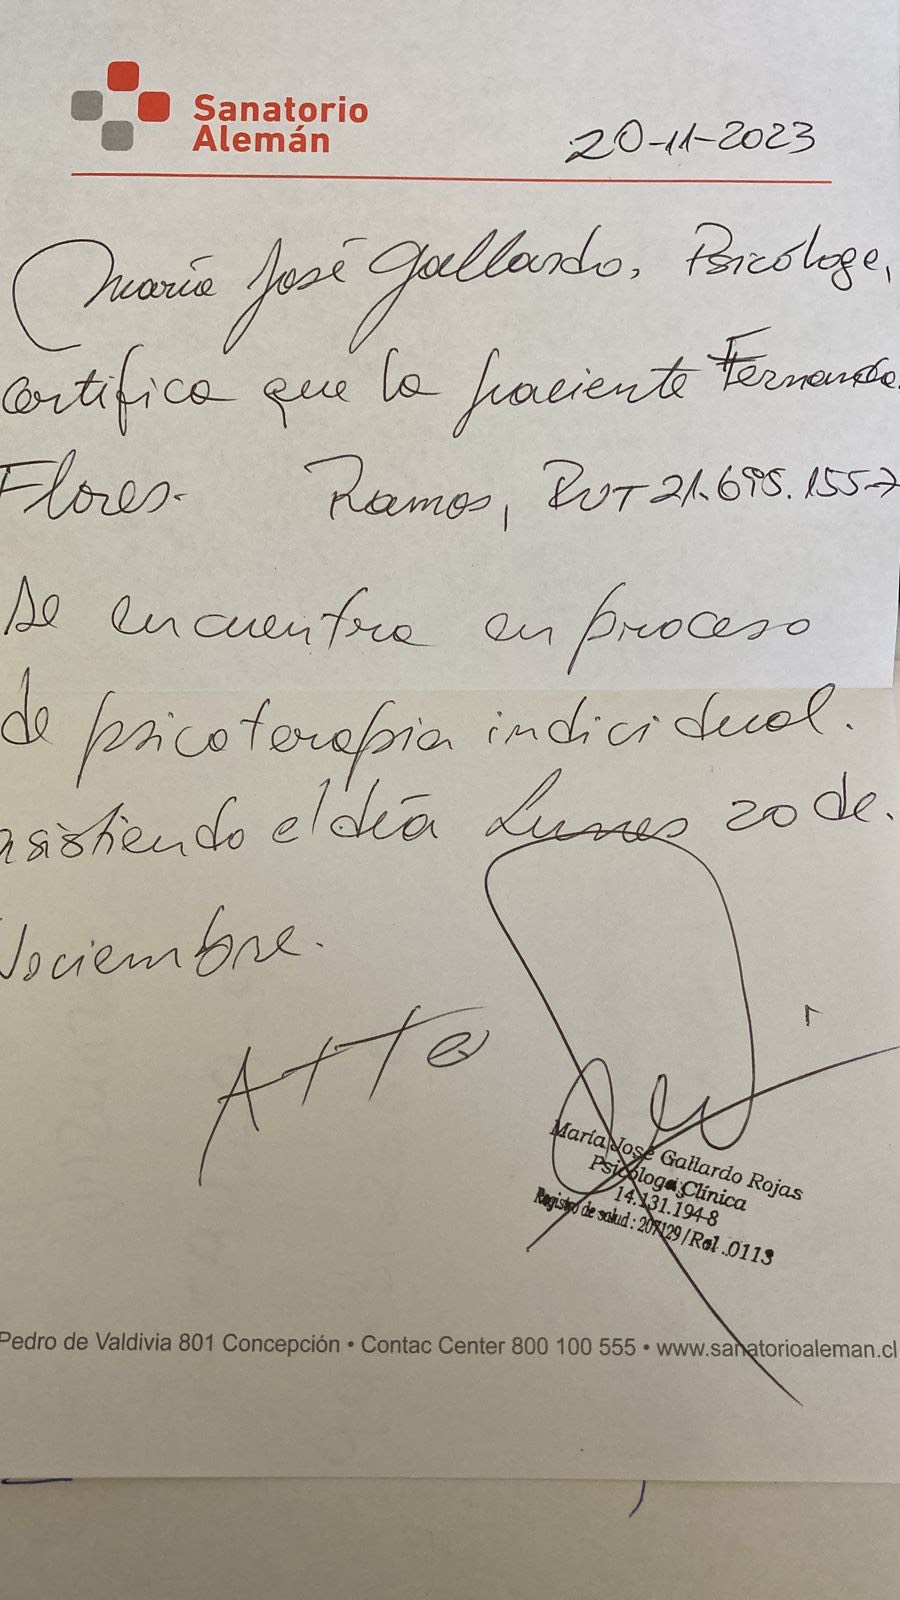 Sanatorio
Alemán
20-11-2023
María José Gallardo, Psicóloga,
certifica que la paciente Fernanda
Flores. Ramos, RUT 21.695.155-7
se encuentra en proceso
de psicoterapia individual.
asistiendo el día Lunes 20 de.
Noviembre.
Atte
María José Gallardo Rojas
Psicóloga Clínica
14.131.194-8
Registro de salud : 207129 / Rol .0113
Pedro de Valdivia 801 Concepción • Contac Center 800 100 555 • www.sanatorioaleman.cl